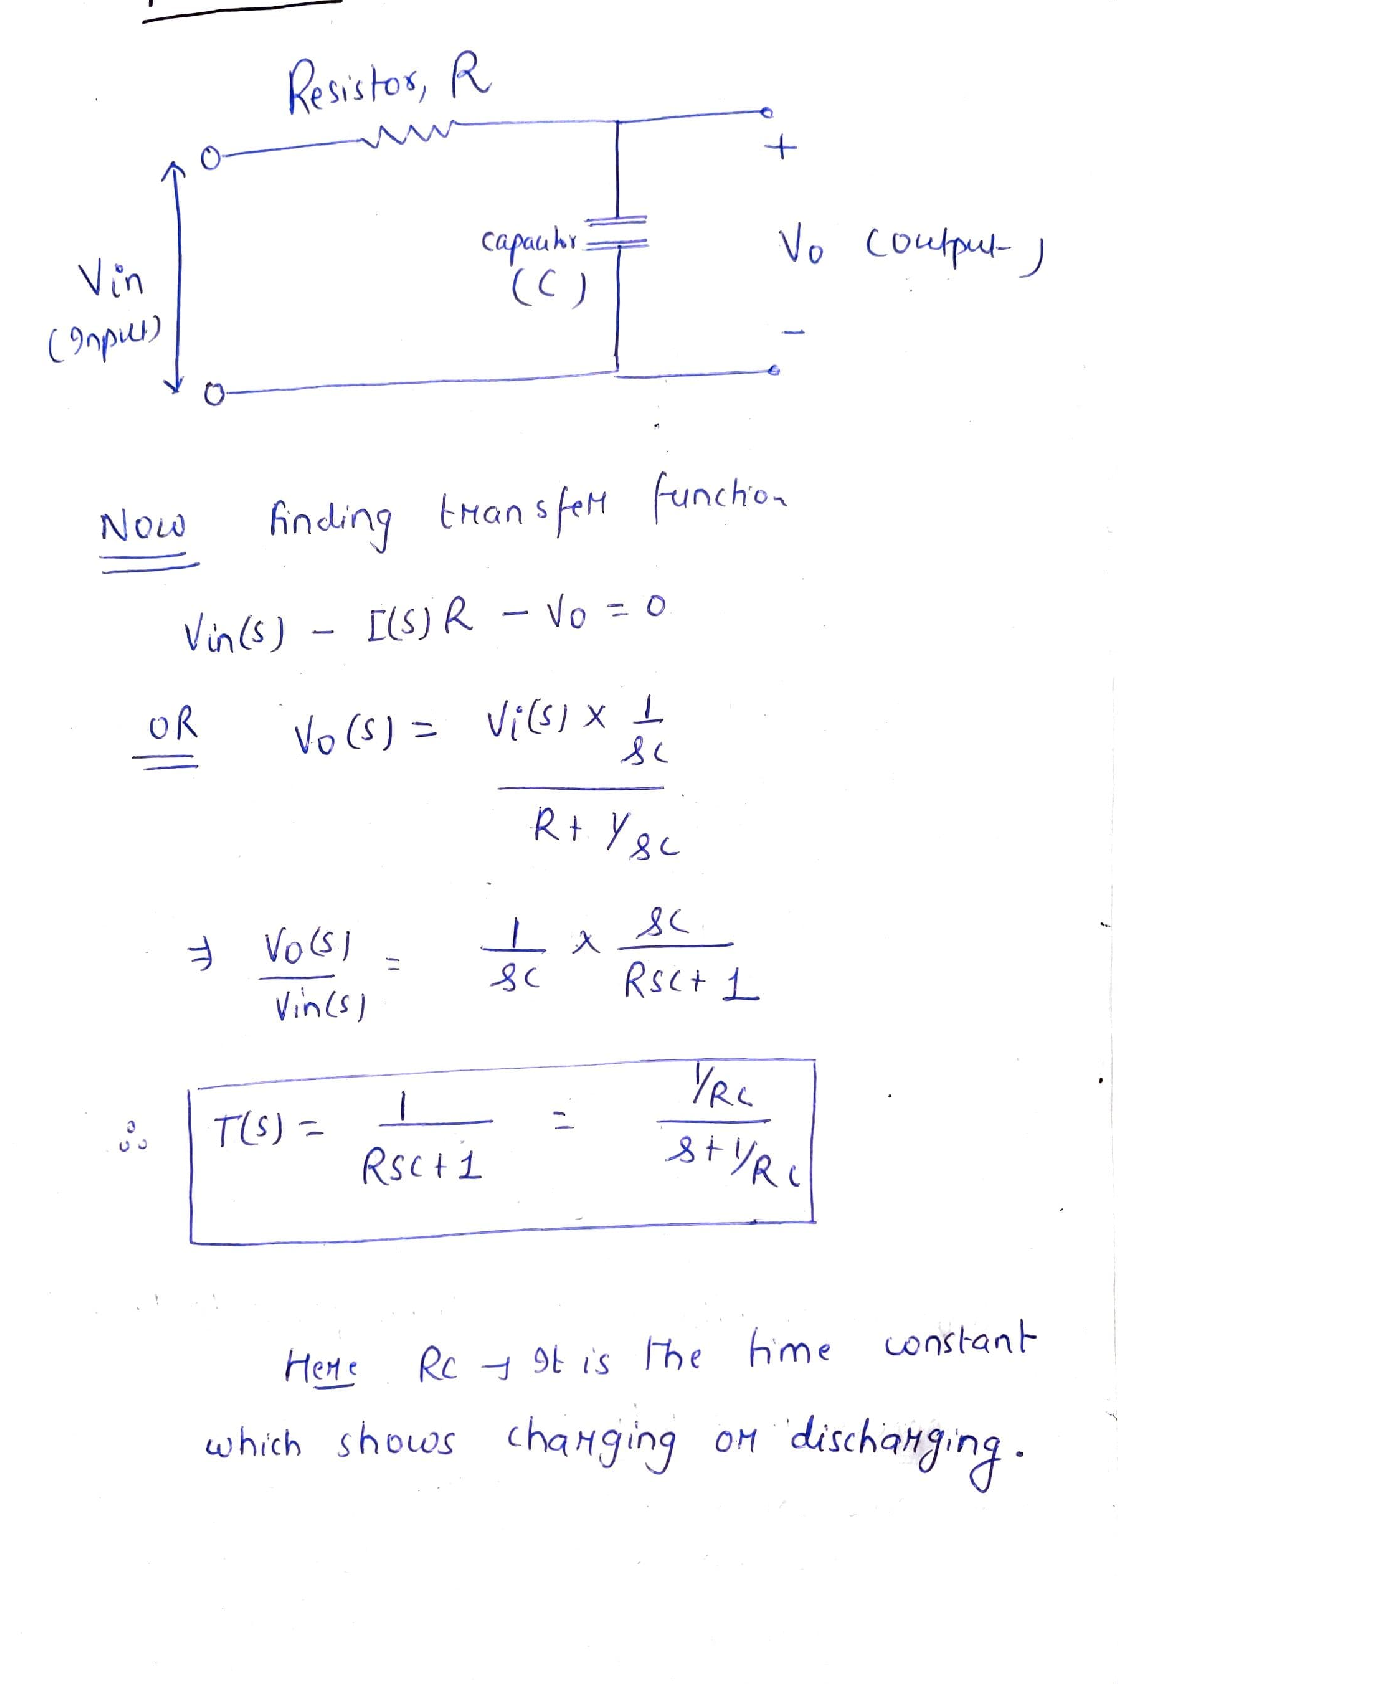 Resistor, R
+
Vin
(Input)
capacitor
(C)
Vo (output)
-
Now finding transfer function
Vin(s) - I(s) R - Vo = 0
OR Vo(s) = Vi(s) x 1/sc
R + 1/sc
⇒ Vo(s)/Vin(s) = 1/sc x sc/Rsc+1
∴ T(s) = 1/Rsc+1 = 1/RC / s+1/RC
Here RC → It is the time constant
which shows charging or discharging.